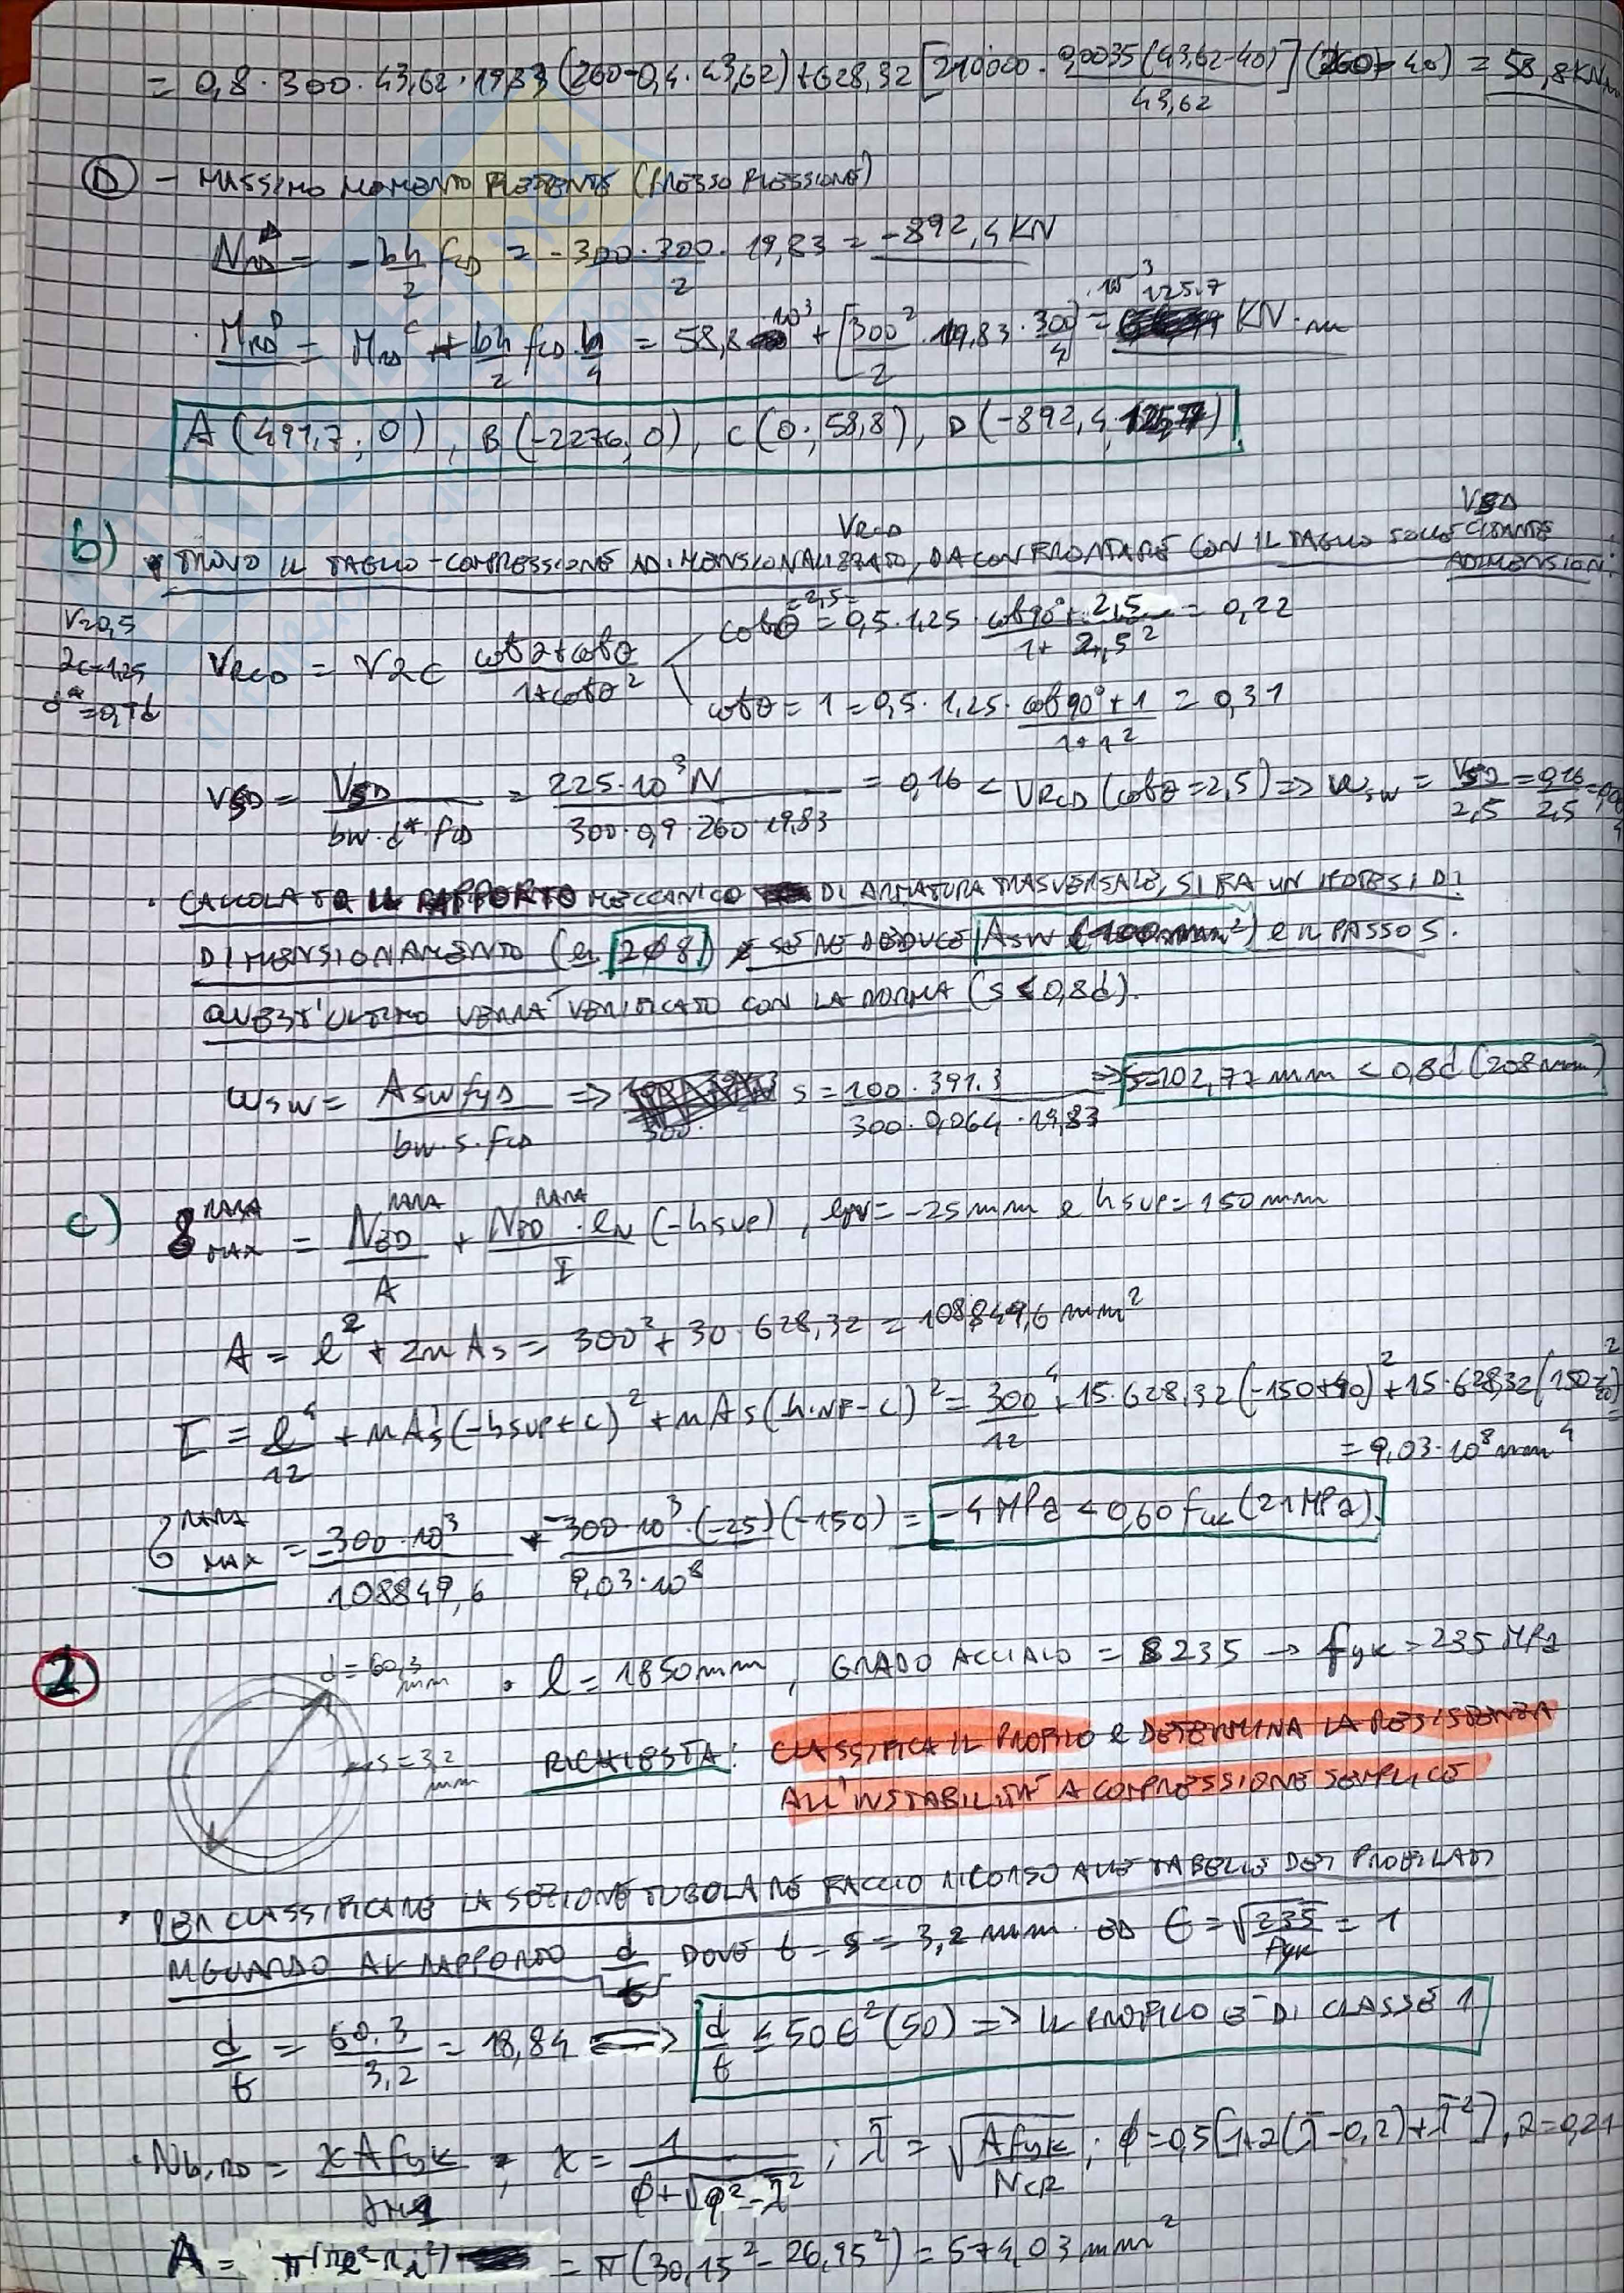 = 0,8 · 300 · 43,62 · 19,83 (260-0,4 · 43,62) + 628,32 [210000 · 0,0035(43,62-40) / 43,62] (260-40) = 58,8 KN·m
(D) - MASSIMO MOMENTO FLETTENTE (PRESSO FLESSIONE)
N_RD^D = - bh/2 f_CD = - 300·300/2 · 19,83 = -892,4 KN
M_RD^D = M_RD^C + bh/2 f_CD · h/4 = 58,8 · 10^3 + [300^2/2 · 19,83 · 300/4] · 10^-3 = 125.7 KN·m
A (491,7; 0), B (-2276, 0), C (0; 58,8), D (-892,4, 125,7)
b) · TROVO IL TAGLIO-COMPRESSIONE ADIMENSIONALIZZATO, V_RCD DA CONFRONTARE CON IL TAGLIO SOLLECITANTE V_SD ADIMENSION.
ν=0,5
αc=1,25
d*=0,9d
V_RCD = ν αc (cotα+cotθ)/(1+cotθ^2)
cotθ =2,5= = 0,5 · 1,25 · (cot90°+2,5)/(1+2,5^2) = 0,22
cotθ = 1 = 0,5 · 1,25 · (cot90°+1)/(1+1^2) = 0,31
V_SD = V_SD/(bw · d* · f_CD) = 225·10^3 N/(300·0,9·260·19,83) = 0,16 < V_RCD (cotθ=2,5) => ω_sw = V_SD/2,5 = 0,16/2,5 =
· CALCOLATO IL RAPPORTO MECCANICO DI ARMATURA TRASVERSALE, SI FA UN IPOTESI DI
DIMENSIONAMENTO (es 2Φ8) E SE NE DEDUCE Asw (100mm^2) e IL PASSO S.
QUEST'ULTIMO VERRÀ VERIFICATO CON LA NORMA (S ≤ 0,8d).
ω_sw = Asw f_yD/(bw·s·f_CD) => s = 100 · 391.3/(300 · 0,064 · 19,83) => s=102,77 mm < 0,8d (208mm)
c) σ_MAX^RARA = N_ED^RARA/A + N_ED^RARA · e_N/I (-hsup), e_N = -25mm e hsup = 150mm
A = l^2 + 2n As = 300^2 + 30 · 628,32 = 108849,6 mm^2
I = l^4/12 + nA's (-hsup+c)^2 + nAs (hinf-c)^2 = 300^4/12 + 15·628,32 (-150+40)^2 + 15·628,32 (150-40)^2 =
= 9,03·10^8 mm^4
σ_MAX^RARA = -300·10^3/108849,6 + -300·10^3·(-25)(-150)/9,03·10^8 = -4 MPa < 0,60 fck (21 MPa).
(2) d=60,3 mm · l = 1850mm, GRADO ACCIAIO = S235 → fyk = 235 MPa
s=3,2 mm RICHIESTA: CLASSIFICA IL PROFILO E DETERMINA LA RESISTENZA
ALL'INSTABILITÀ A COMPRESSIONE SEMPLICE
· PER CLASSIFICARE LA SEZIONE TUBOLARE FACCIO RICORSO ALLE TABELLE DEI PROFILATI
RIGUARDO AL RAPPORTO d/t DOVE t = s = 3,2 mm. ED ϵ = √(235/fyk) = 1
d/t = 60.3/3,2 = 18,84 => d/t ≤ 50ϵ^2 (50) => IL PROFILO È DI CLASSE 1
· Nb,RD = χ A fyk/γM1 ; χ = 1/(ϕ+√(ϕ^2-λ̄^2)) ; λ̄ = √(A fyk/NCR) ; ϕ = 0,5[1+α(λ̄-0,2)+λ̄^2], α=0,21
A = π(re^2-ri^2) = π(30,15^2 - 26,95^2) = 574,03 mm^2